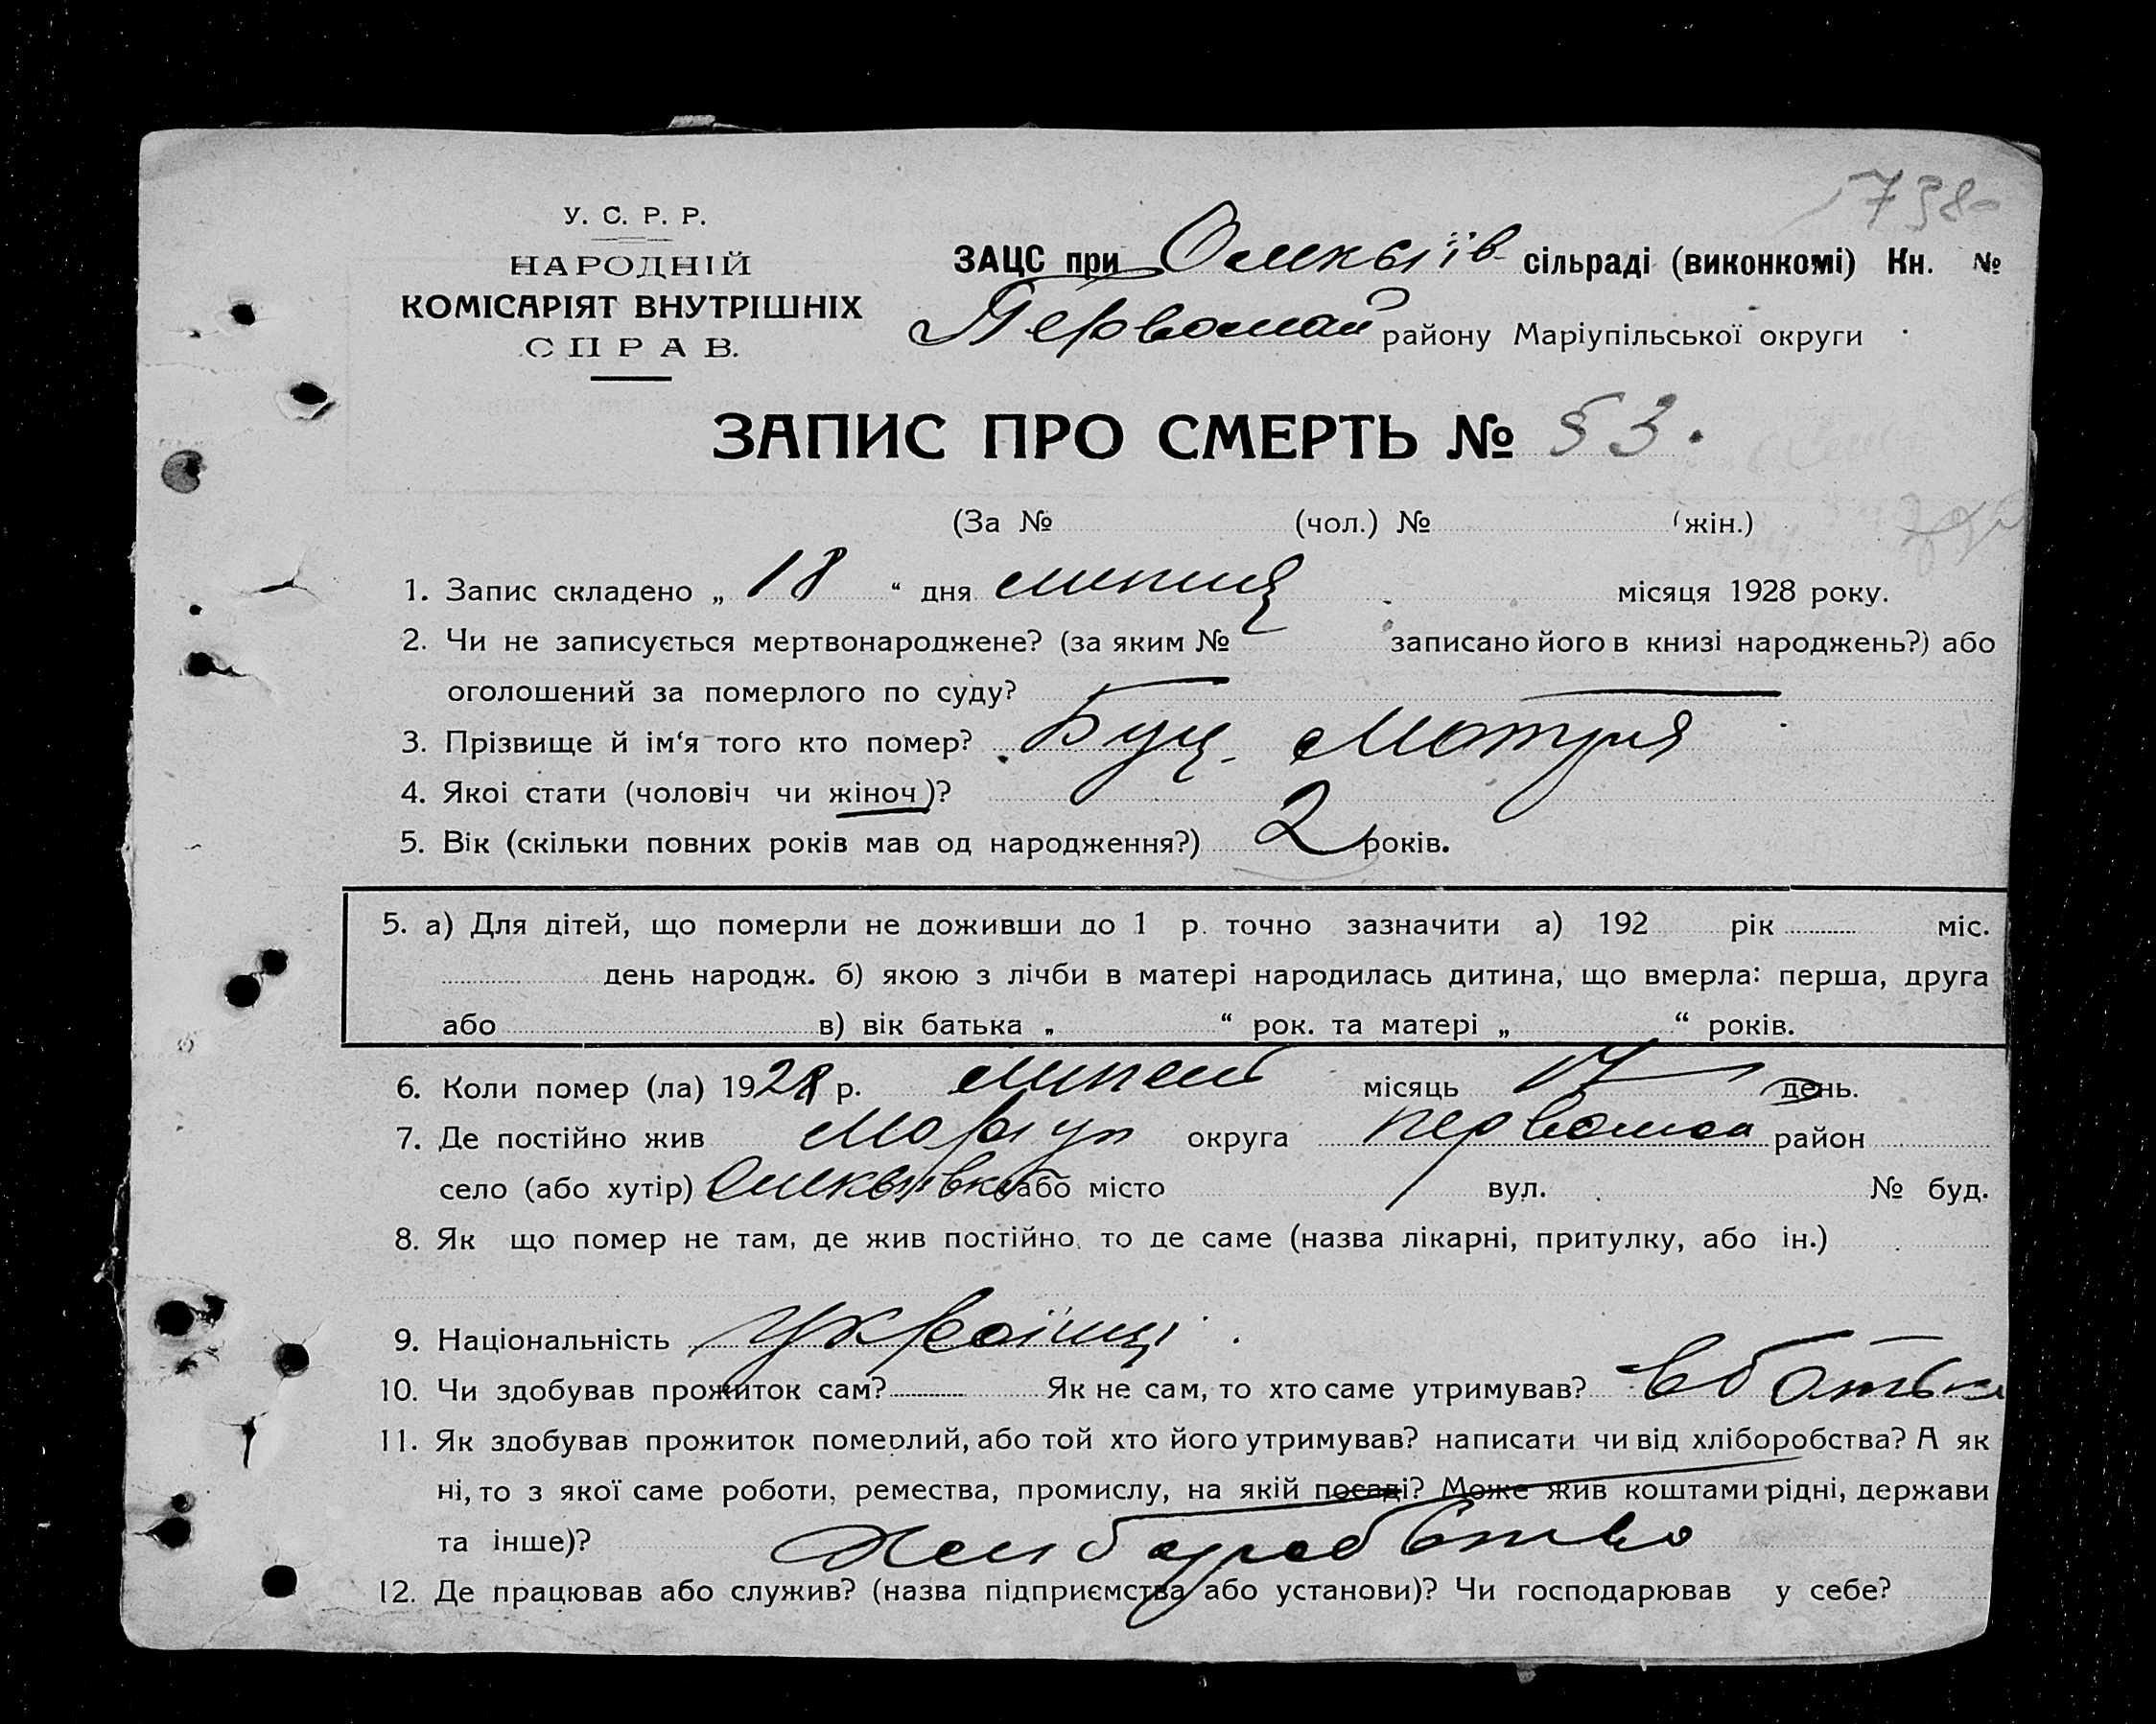 1738
У. С. Р. Р.
НАРОДНІЙ
КОМІСАРІЯТ ВНУТРІШНІХ
СПРАВ.
ЗАЦС при сільраді (виконкомі) Кн. №
Первомай району Маріупільської округи
ЗАПИС ПРО СМЕРТЬ № 53.
(За № (чол.) № (жін.)
1. Запис складено „ 18 “ дня липня місяця 1928 року.
2. Чи не записується мертвонароджене? (за яким № записано його в книзі народжень?) або
оголошений за померлого по суду?
3. Прізвище й ім‘я того кто помер? Буц. Мотря
4. Якоі стати (чоловіч чи жіноч)?
5. Вік (скільки повних років мав од народження?) 2 років.
5. а) Для дітей, що померли не доживши до 1 р. точно зазначити а) 192 рік міс.
день народж. б) якою з лічби в матері народилась дитина, що вмерла: перша, друга
або в) вік батька „ “ рок. та матері „ “ років.
6. Коли помер (ла) 1928 р. липень місяць 17 день.
7. Де постійно жив Маріуп округа первомай район
село (або хутір) або місто вул. № буд.
8. Як що помер не там, де жив постійно, то де саме (назва лікарні, притулку, або ін.)
9. Національність Українці.
10. Чи здобував прожиток сам? Як не сам, то хто саме утримував? батьки
11. Як здобував прожиток померлий, або той хто його утримував? написати чи від хліборобства? А як
ні, то з якої саме роботи, ремества, промислу, на якій посаді? Може жив коштами рідні, держави
та інше)? Хлибаробство
12. Де працював або служив? (назва підприємства або установи)? Чи господарював у себе?